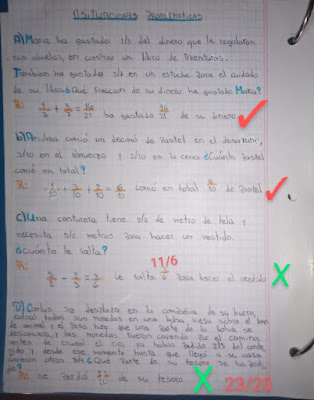 1) Situaciones Problemáticas
A) Maria ha gastado 1/3 del dinero que le regalaron
sus abuelos, en comprar un libro de aventuras.
También ha gastado 3/7 en un estuche para el cuidado
de su libro. ¿Que fracción de su dinero ha gastado ?
R: 1/3 + 3/7 = 16/21 ha gastado 16/21 de su dinero
b) Andrea comió un decimo de pastel en el desayuno,
3/10 en el almuerzo y 2/10 en la cena ¿Cuánto pastel
comió en total?
R: 1/10 + 3/10 + 2/10 = 6/10 comió en total 6/10 de Pastel
c) Una costurera tiene de metro de tela y
necesita metros para hacer un vestido.
¿Cuánto le falta?
11/6
le falta para hacer el vestido X
D) Carlos se desplaza en la de su burro,
todas sus monedas en una bolsa vieja sobre el lomo
de animal y el paso hizo que una parte de la bolsa se
y las monedas fueron cayendo por el camino,
antes de cruzar el rio, ya había perdido 2/5 del
y desde ese momento hasta que llegó a su casa
otros 3/4 ¿Que parte de su tesoro se ha
R: se perdió de su tesoro X 23/20